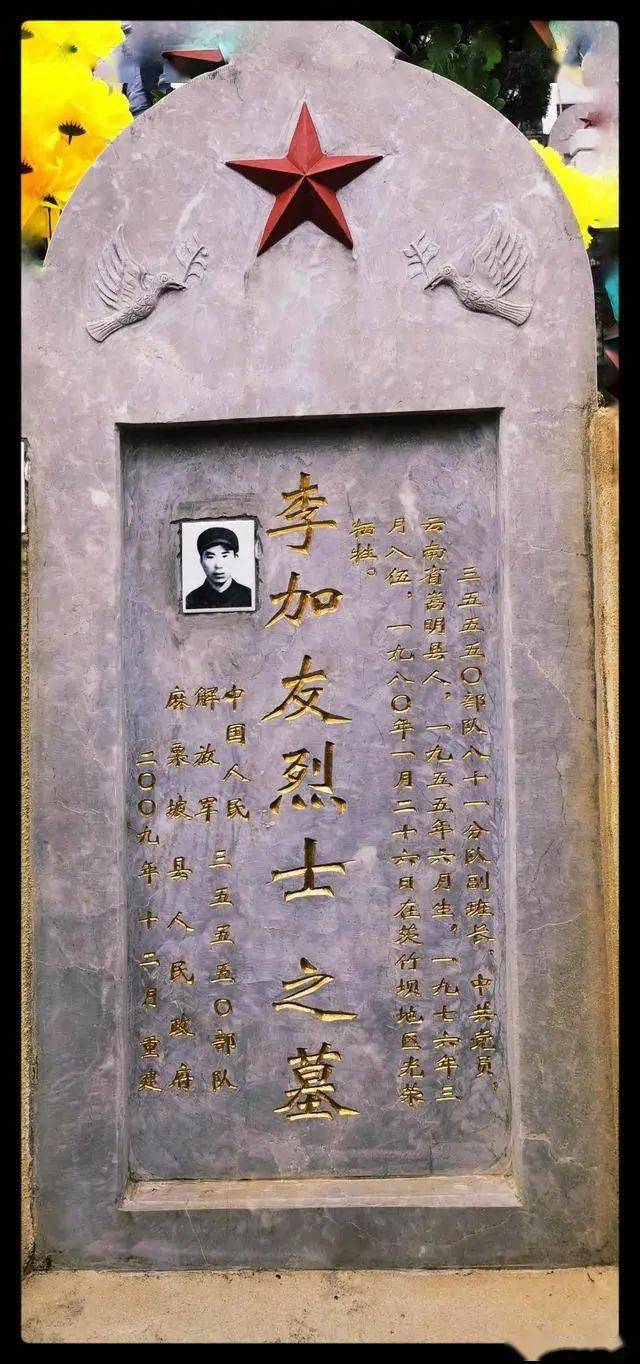 三五五五〇部队八十一分队副班长，中共党员，
云南省嵩明县人，一九五五年六月生，一九七六年三
月入伍，一九八〇年一月二十六日在茨竹坝地区光荣
牺牲。
李加友烈士之墓
中国人民
解放军三五五五〇部队
麻栗坡县人民政府
二〇〇九年十二月重建